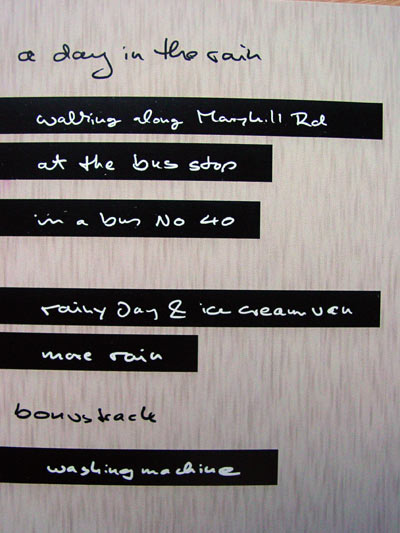 a day in the rain
walking along Maryhill Rd
at the bus stop
in a bus No 40
rainy Day & ice cream van
more rain
bonustrack
washing machine